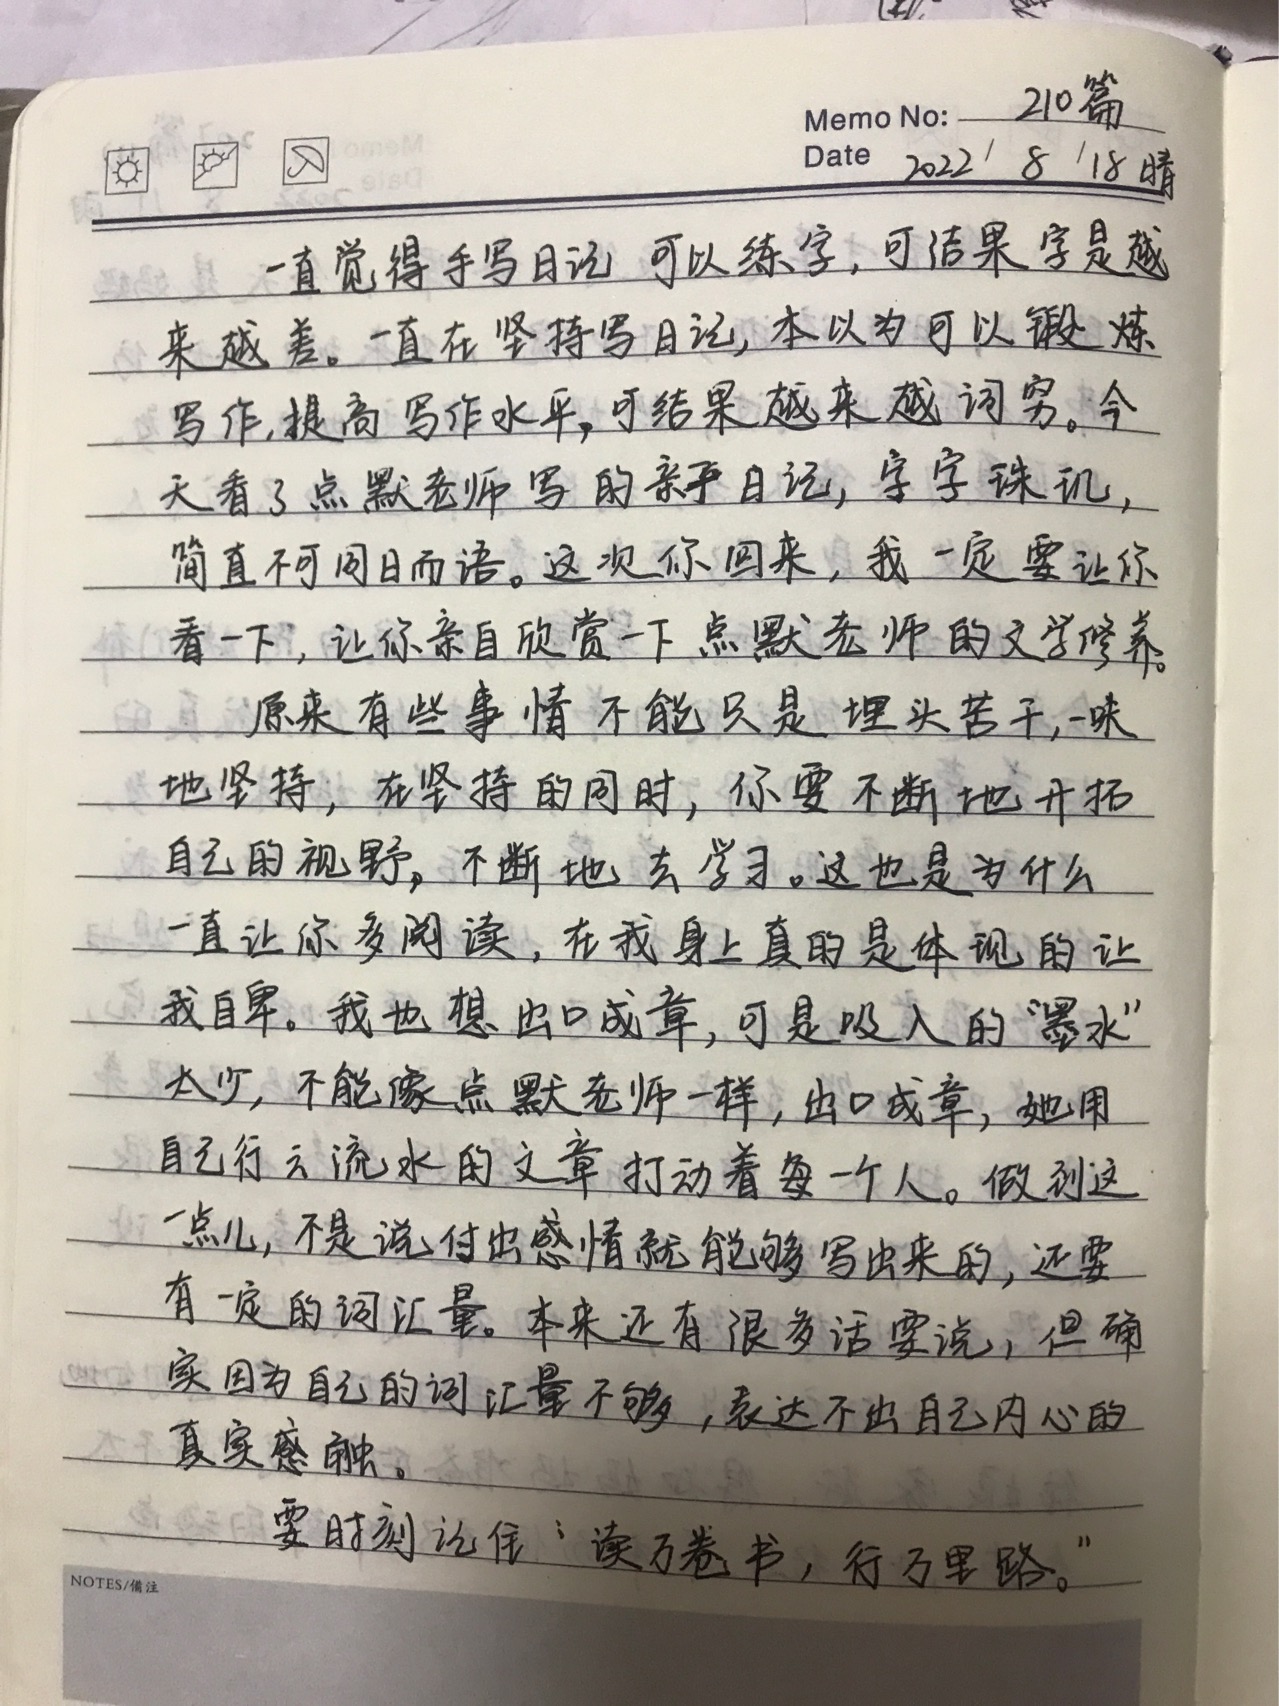 Memo No: 210篇
Date 2022/8/18晴
一直觉得手写日记可以练字,可结果字是越
来越差。一直在坚持写日记,本以为可以锻炼
写作,提高写作水平,可结果越来越词穷。今
天看了点默老师写的亲子日记,字字珠玑,
简直不可同日而语。这次你回来,我一定要让你
看一下,让你亲自欣赏一下点默老师的文学修养。
原来有些事情不能只是埋头苦干,一味
地坚持,在坚持的同时,你要不断地开拓
自己的视野,不断地去学习。这也是为什么
一直让你多阅读,在我身上真的是体现的让
我自卑。我也想出口成章,可是吸入的“墨水”
太少,不能像点默老师一样,出口成章,她用
自己行云流水的文章打动着每一个人。做到这
一点儿,不是说付出感情就能够写出来的,还要
有一定的词汇量。本来还有很多话要说,但确
实因为自己的词汇量不够,表达不出自己内心的
真实感触。
要时刻记住“读万卷书,行万里路。”
NOTES/備注